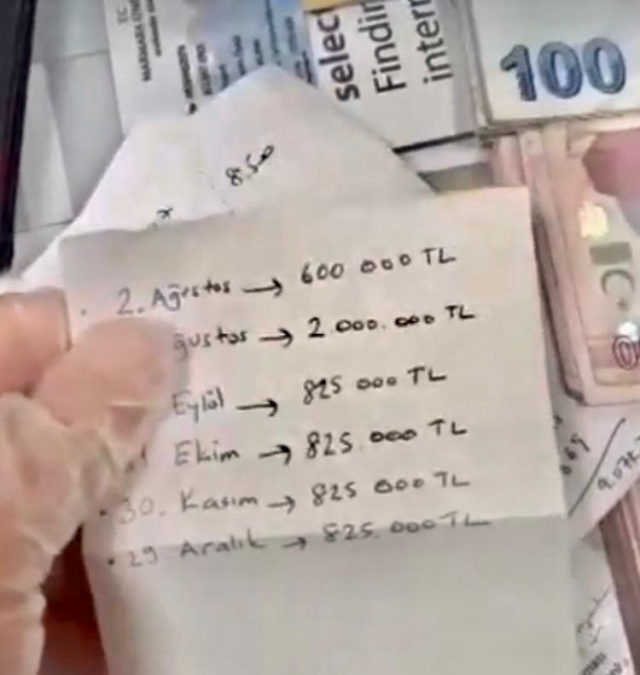 selec
Findin
inter
100
8.50
2. Ağustos → 600 000 TL
ğustos → 2.000.000 TL
Eylül → 825 000 TL
Ekim → 825.000 TL
30. Kasım → 825 000 TL
29 Aralık → 825.000 TL